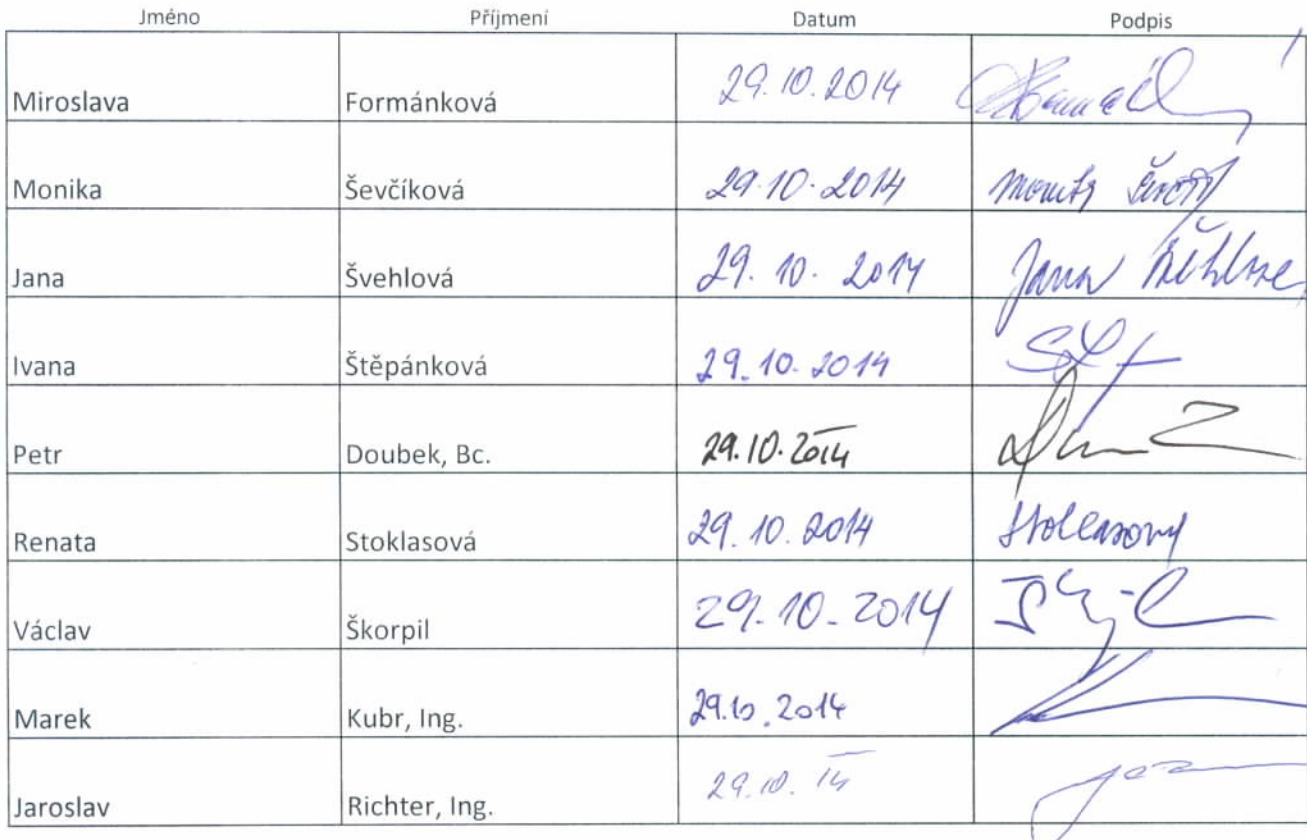 Jméno Příjmení Datum Podpis
Miroslava Formánková 29.10.2014
Monika Ševčíková 29.10.2014
Jana Švehlová 29. 10. 2014 Jana
Ivana Štěpánková 29.10.2014
Petr Doubek, Bc. 29.10.2014
Renata Stoklasová 29.10.2014
Václav Škorpil 29.10.2014
Marek Kubr, Ing. 29.10.2014
Jaroslav Richter, Ing. 29.10.14